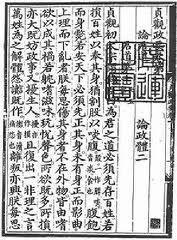 貞觀政要
論
論政體二
貞觀初
為君之道必須先存百姓若
損百姓以奉其身猶割股以啖腹腹飽
而身斃若安天下必須先正其身未有身正而影曲
上理而下亂者朕每思傷其身者不在外物皆由嗜
欲以成其禍若耽嗜滋味玩悅聲色所欲既多所損
亦大既妨政事又擾生人且復出一非理之言
萬姓為之解體怨讟既作離叛亦興朕每思